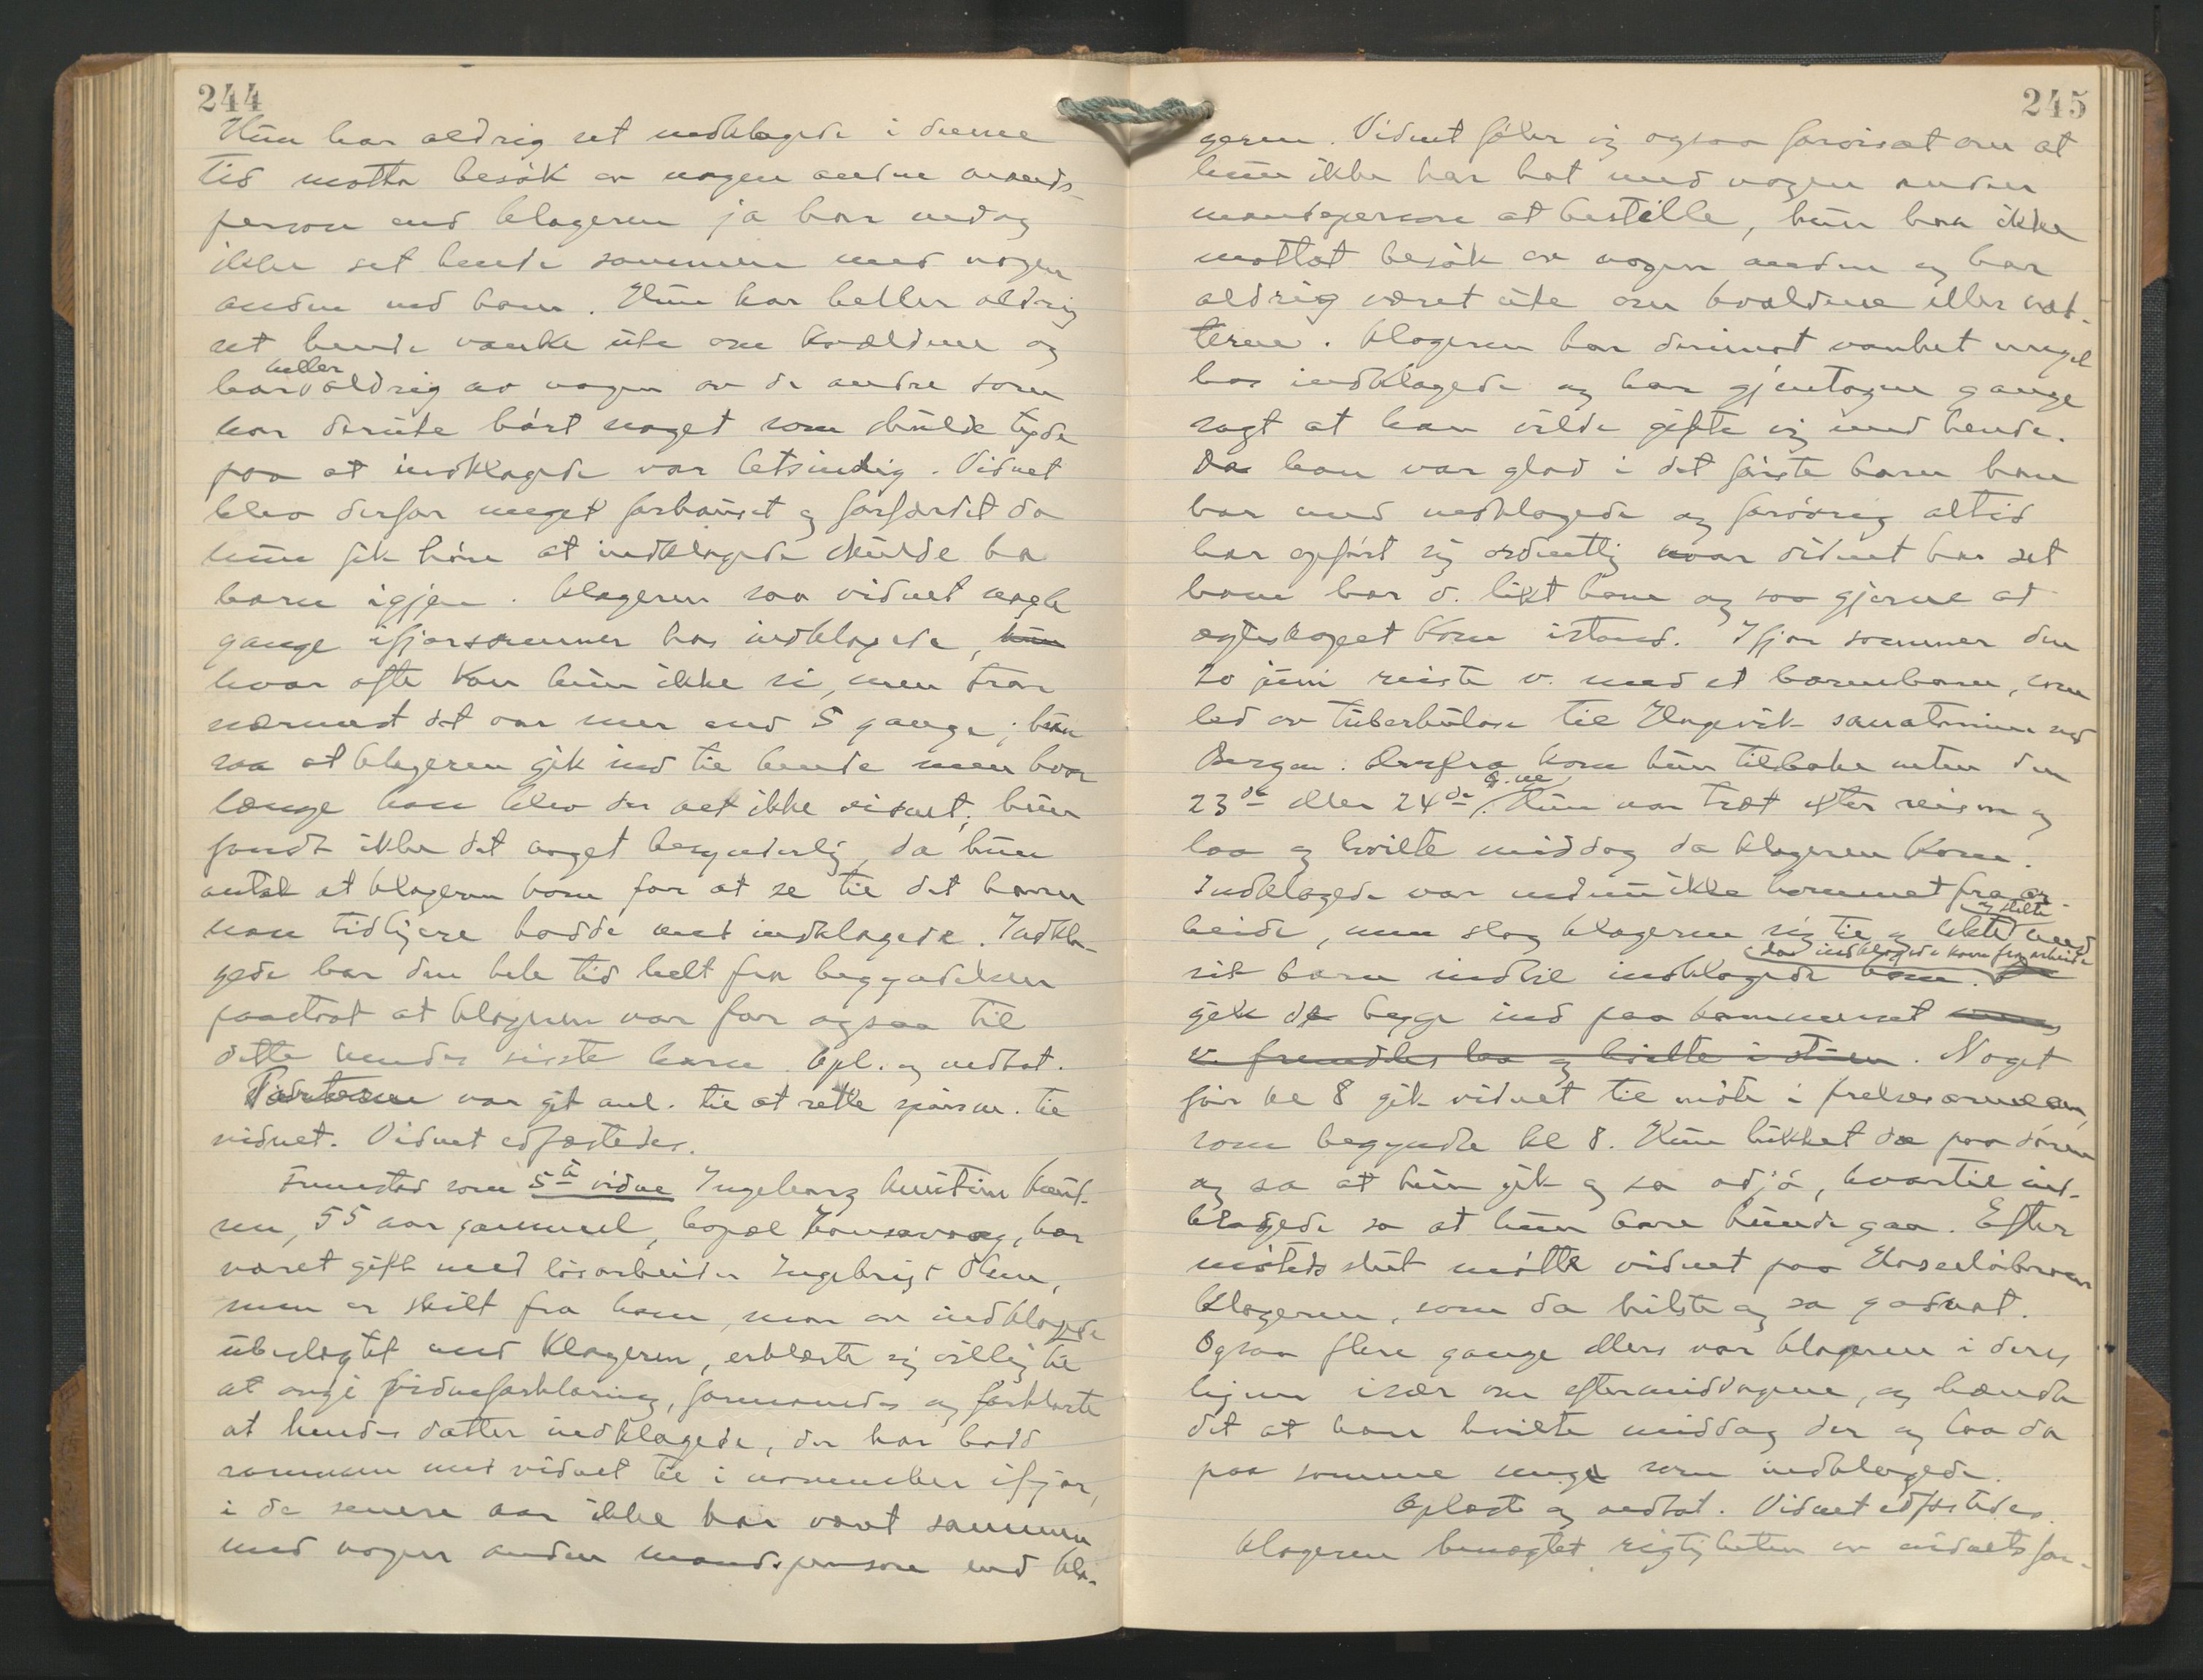 244
Hun har aldrig set indklagede i denne
tid motta besøk av nogen anden mands-
person end klageren ja har endog
ikke set hende sammen med nogen
anden end ham. Hun har heller aldrig
set hende vanke ute om kvældene og
heller
har aldrig av nogen av de andre som
bor derute hørt noget som skulde tyde
paa at indklagede var letsindig. Vidnet
blev derfor meget forbauset og forfærdet da
hun fik høre at indklagede skulde ha
barn igjen. Klageren saa vidnet nogle
gange ifjorsommer hos indklagede, hun
hvor ofte kan hun ikke si, men tror
nærmest det var mer end 5 gange; hun
saa at klageren gik ind til hende men hvor
længe han blev der vet ikke vidnet; hun
fandt ikke det noget besynderlig, da hun
antok at klageren kom for at se til det barn
han tidligere hadde med indklagede. Indkla-
gede har den hele tid helt fra begyndelsen
paastaat at klageren var far ogsaa til
dette hendes siste barn. Opl. og vedtat.
Parterne var git anl. til at rette spørsm. til
vidnet. Vidnet edfæstedes.
Fremstod som 5te vidne Ingeborg
55 aar gammel, bopæl har
været gift med løsarbeider Ingebrigt Olsen,
men er skilt fra ham, mor av indklagede
ubeslægtet med klageren, erklærte sig villig til
at avgi vidneforklaring, formanedes og forklarte
at hendes datter indklagede, der har bodd
sammen med vidnet til i november ifjor,
i de senere aar ikke har været sammen
med nogen anden mandsperson end kla-
245
geren. Vidnet føler sig ogsaa forvisset om at
hun ikke har hat med nogen anden
mandsperson at bestille, hun har ikke
mottat besøk av nogen anden og har
aldrig været ute om kvældene eller næt-
terne. Klageren har derimot vanket meget
hos indklagede og har gjentagne gange
sagt at han vilde gifte sig med hende.
Da han var glad i det første barn han
har med indklagede og forøvrig altid
har opført sig ordentlig naar vidnet har set
ham har v. likt ham og saa gjerne at
egteskapet kom istand. Ifjor sommer den
20 juni reiste v. med et barnebarn, som
led av tuberkulose til Hagevik sanatorium ved
Bergen. Derfra kom hun tilbake enten den
23de eller 24de s.m. Hun var træt efter reisen og
laa og hvilte middag da klageren kom.
Indklagede var endnu ikke kommet fra ar-
og stelte
beide, men slog klageren sig til og lekte med
da indklagede kom fra arbeide
sit barn indtil indklagede kom. Da
gik de begge ind paa kammerset
v. fremdeles laa og hvilte i stuen. Noget
før kl 8 gik vidnet til møte i frelsesarmeen,
som begyndte kl 8. Hun lukket da paa døren
og sa at hun gik og sa adjø, hvortil ind-
klagede sa at hun bare kunde gaa. Efter
møtets slut møtte vidnet paa
klageren, som da hilste og sa godnat.
Ogsaa flere gange ellers var klageren i deres
hjem især om eftermiddagene, og hændte
det at han hvilte middag der og laa da
paa samme seng som indklagede.
Oplæst og vedtat. Vidnet edfæstedes.
Klageren benegtet rigtigheten av vidnets for-